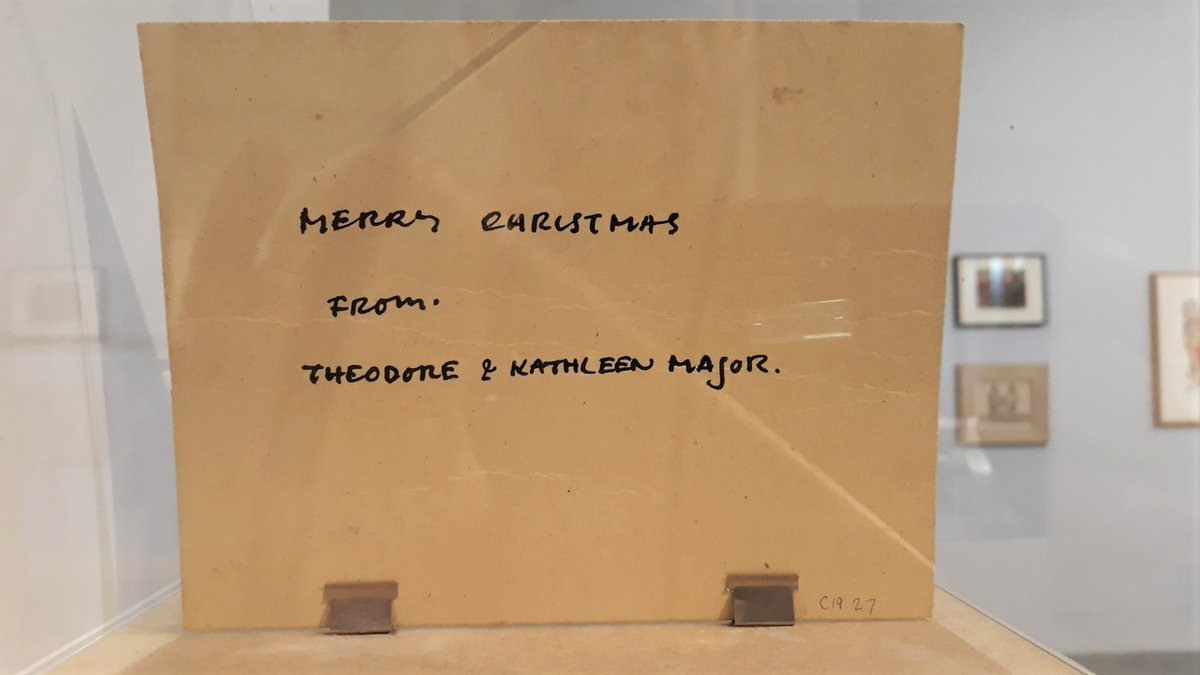 MERRY CHRISTMAS
FROM.
THEODORE & KATHLEEN MAJOR.
C19 27